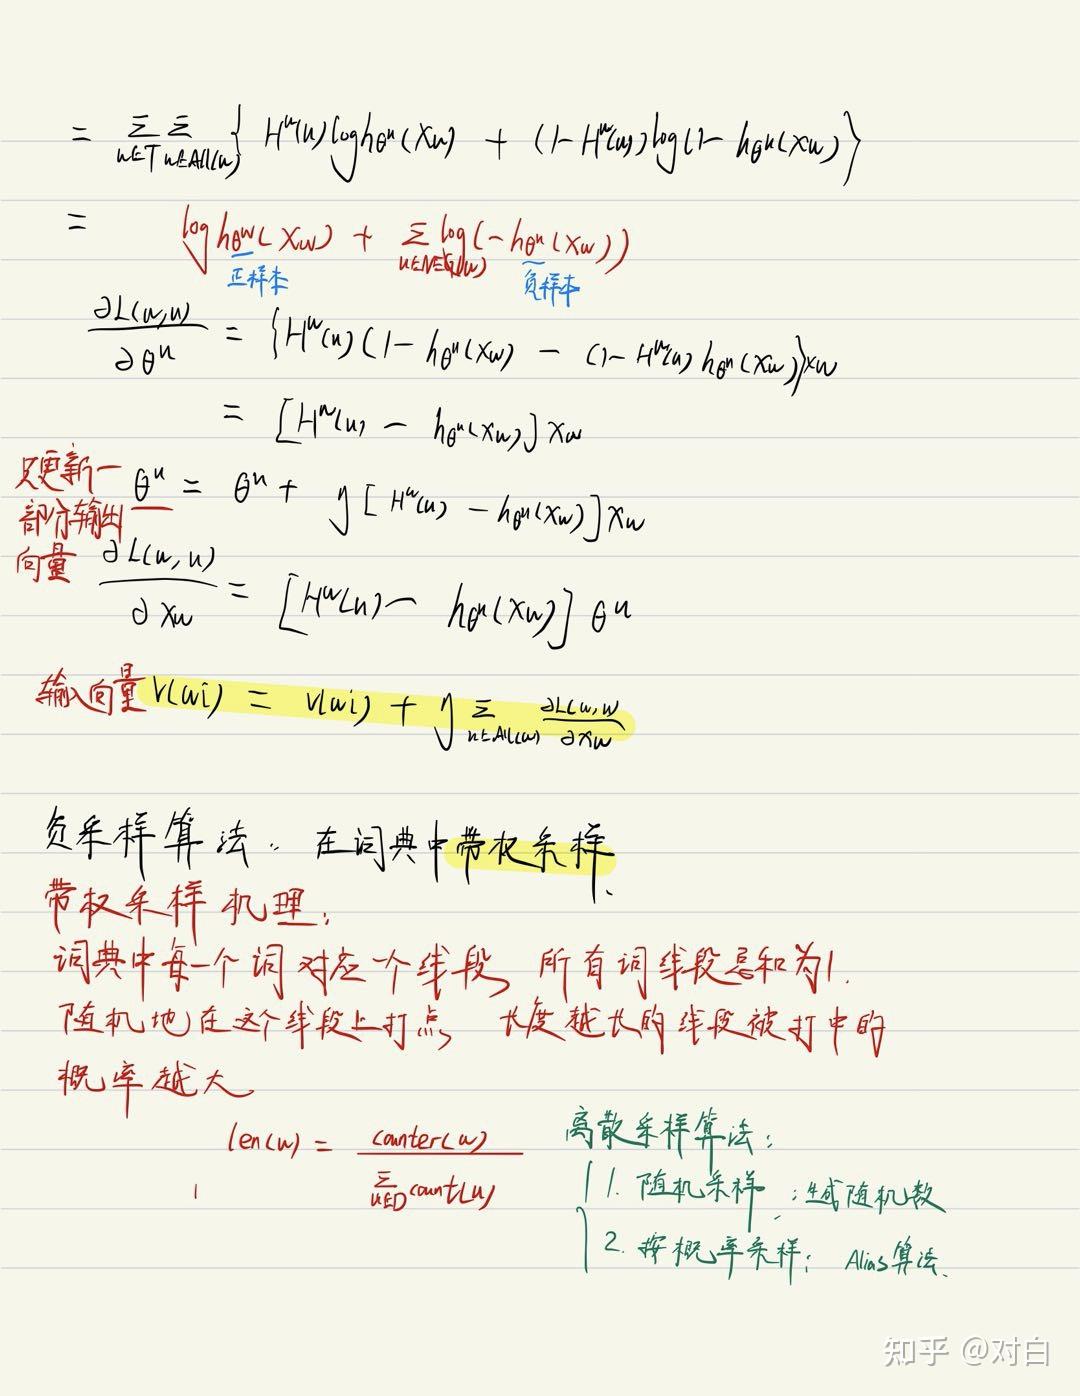 = Σ Σ { Hʷ(u) log h_θᵘ(Xw) + (1-Hʷ(u)) log(1- h_θᵘ(Xw) }
w∈T u∈All(w)
= log h_θʷ(Xw) + Σ log(-h_θᵘ(Xw))
u∈NEG(w)
正样本 负样本
∂L(w,u)/∂θᵘ = {Hʷ(u)(1- h_θᵘ(Xw) - (1-Hʷ(u) h_θᵘ(Xw)}xw
= [Hʷ(u) - h_θᵘ(Xw)] Xw
只更新一
部分输出
向量
θᵘ = θᵘ + η[Hʷ(u) - h_θᵘ(Xw)] Xw
∂L(w,u)/∂Xw = [Hʷ(u) - h_θᵘ(Xw)] θᵘ
输入向量 V(wi) = V(wi) + η Σ ∂L(w,u)/∂Xw
u∈All(w)
负采样算法: 在词典中带权采样.
带权采样机理:
词典中每一个词对应一个线段, 所有词线段总和为1.
随机地在这个线段上打点, 长度越长的线段被打中的
概率越大
len(w) = counter(w) / Σ count(u)
u∈D
离散采样算法:
1. 随机采样: 生成随机数
2. 按概率采样: Alias算法.
知乎 @对白